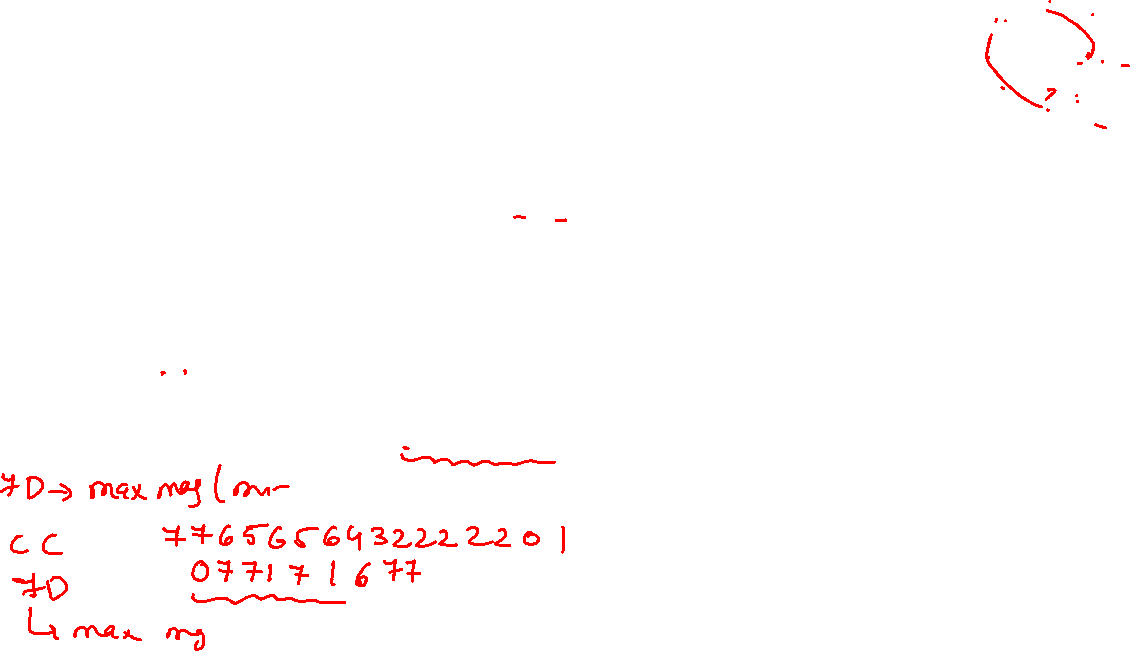 7D → max neg (
CC 7765656432222201
7D 077171677
↳ max ng